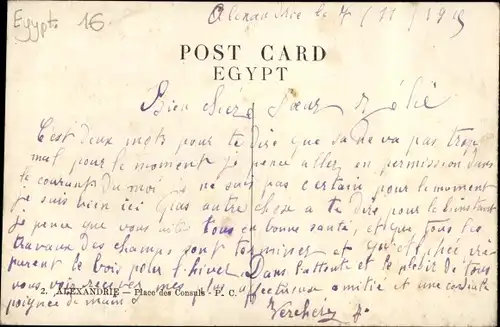 Egypte 16
Alexandrie le 4/11/1915
POST CARD
EGYPT
Bien chère Sœur Zélie
C'est deux mots pour te dire que sa ne va pas trop
mal pour le moment je pence aller en permission dans
le courants du moi je ne suis pas certain pour le moment
je suis bien ici pas autre chose a te dire pour l'instant
je pence que vous êtes tous en bonne santé, et que tous les
travaux des champs sont terminer et qu'
parent le bois pour l'hiver Dans l'attente et le plésir de tous
vous voir recevez mes plus affectueux amitie et une cordiale
poignée de mains
2. ALEXANDRIE — Place des Consuls - P. C.